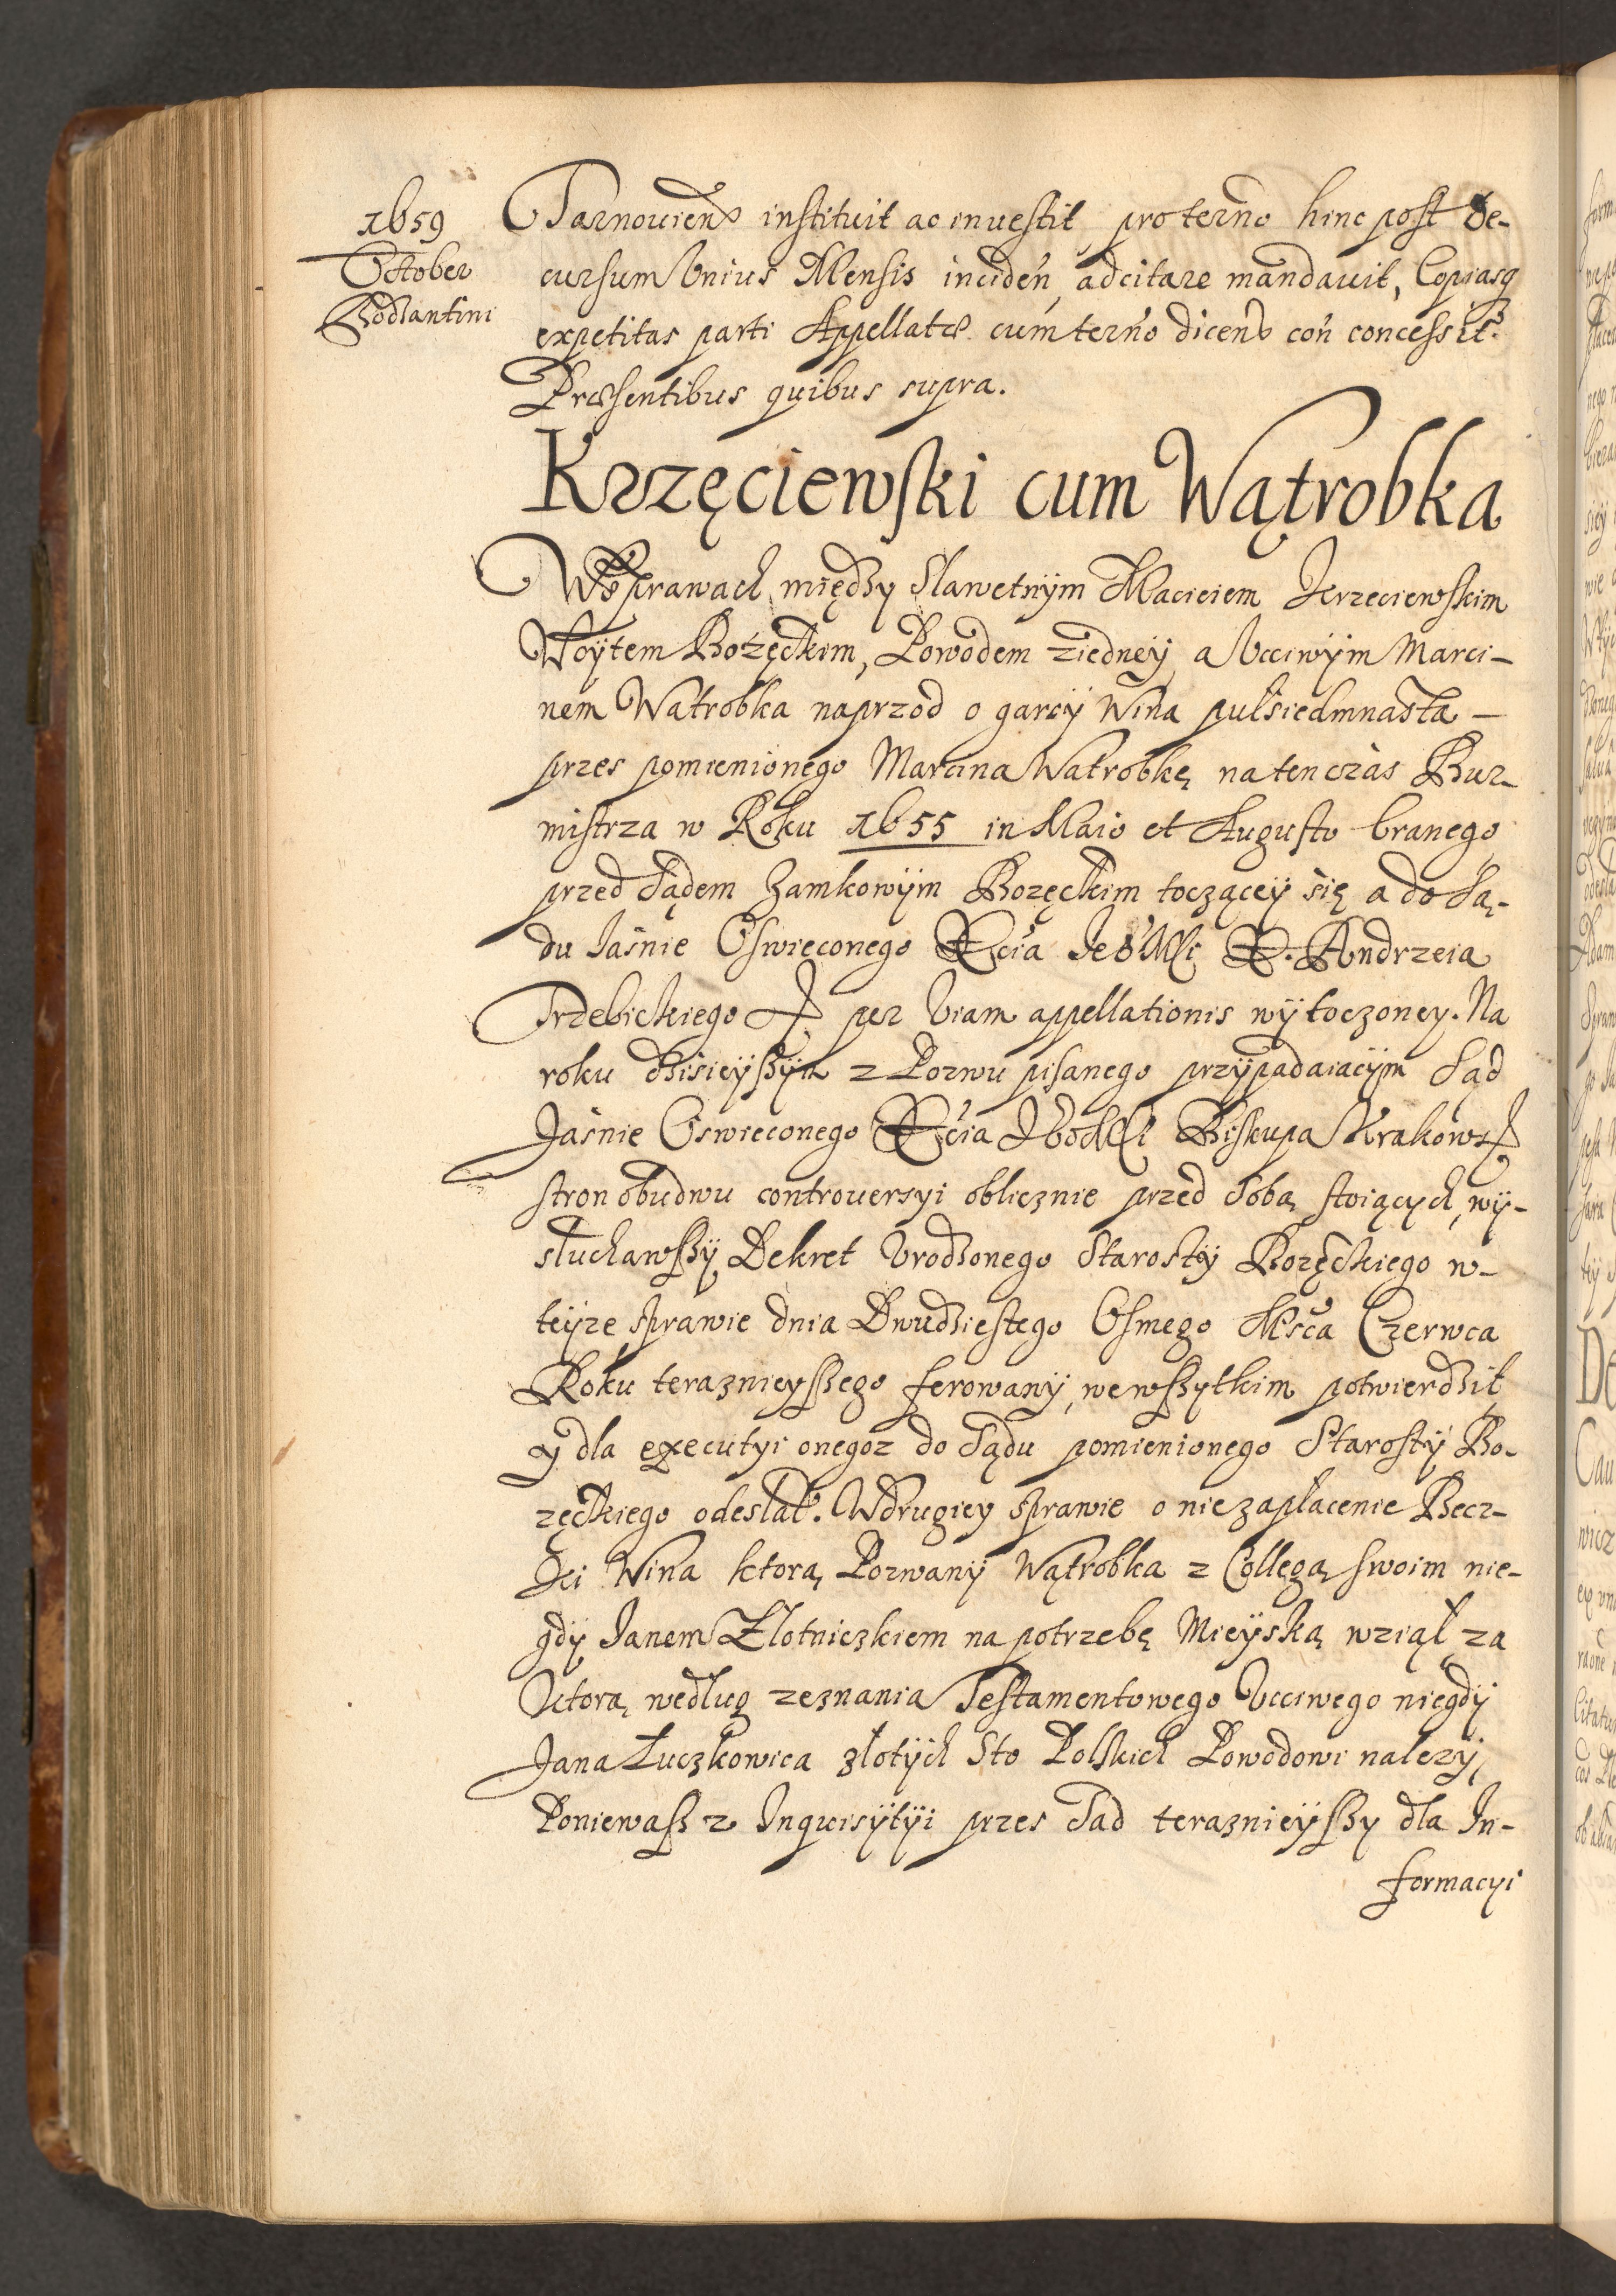 1659
October
Bodzantini
Tarnovien instituit ac investit pro termo hinc post de-
cursum Unius Mensis inciden adcitare mandavit, Copiasq
expetitas parti Appellatæ cum termo dicen con concessit.
Præsentibus quibus supra.
Krzęciewski cum Wątrobka
W Sprawach między Sławetnÿm Macieiem Krzeciewskim
Woÿtem Bozęckim, Powodem ziedneÿ, a Ucciwÿm Marci-
nem Wątrobka naprzod o garcÿ Wina pułsiedmnasta
przes pomienionego Marcina Wątrobkę na ten czas Bur-
mistrza w Roku 1655 in Maio et Augusto branego
przed Sądem Zamkowÿm Bozęckim toczącÿ się a do Są-
du Jaśnie Oswieconego Xcia Je° Mści X. Andrzeia
Trzebickiego & per Viam appellationis wÿtoczoney. Na
roku dzisieyszÿm z Pozwu pisanego przÿpadaiacÿm Sąd
Jaśnie Oswieconego Xcia Jego Mści Biskupa Krakows
stron obudwu controversyi oblicznie przed Sobą stoiących, wÿ-
słuchawszÿ Dekret Urodzonego Starostÿ Bozęckiego w-
teÿze sprawie dnia Dwudziestego Osmego Mśca Czerwca
Roku teraznieyszego ferowanÿ, we wszytkim potwierdził
y dla executyi onegoz do Sądu pomienionego Starostÿ Bo-
zęckiego odesłał. W drugiey sprawie o niezapłacenie Becz-
ki Wina ktorą Pozwanÿ Wątrobka z Collegą swoim nie-
gdÿ Janem Złotniczkiem na potrzebę Mieÿską wziął, za
Ktorą według zeznania Testamentowego Ucciwego niegdÿ
Jana Łuczkowica złotÿch Sto Polskich Powodowi nalezÿ,
Poniewasz z Inquisÿtÿi przes Sąd teraznieÿszy dla In-
formacyi